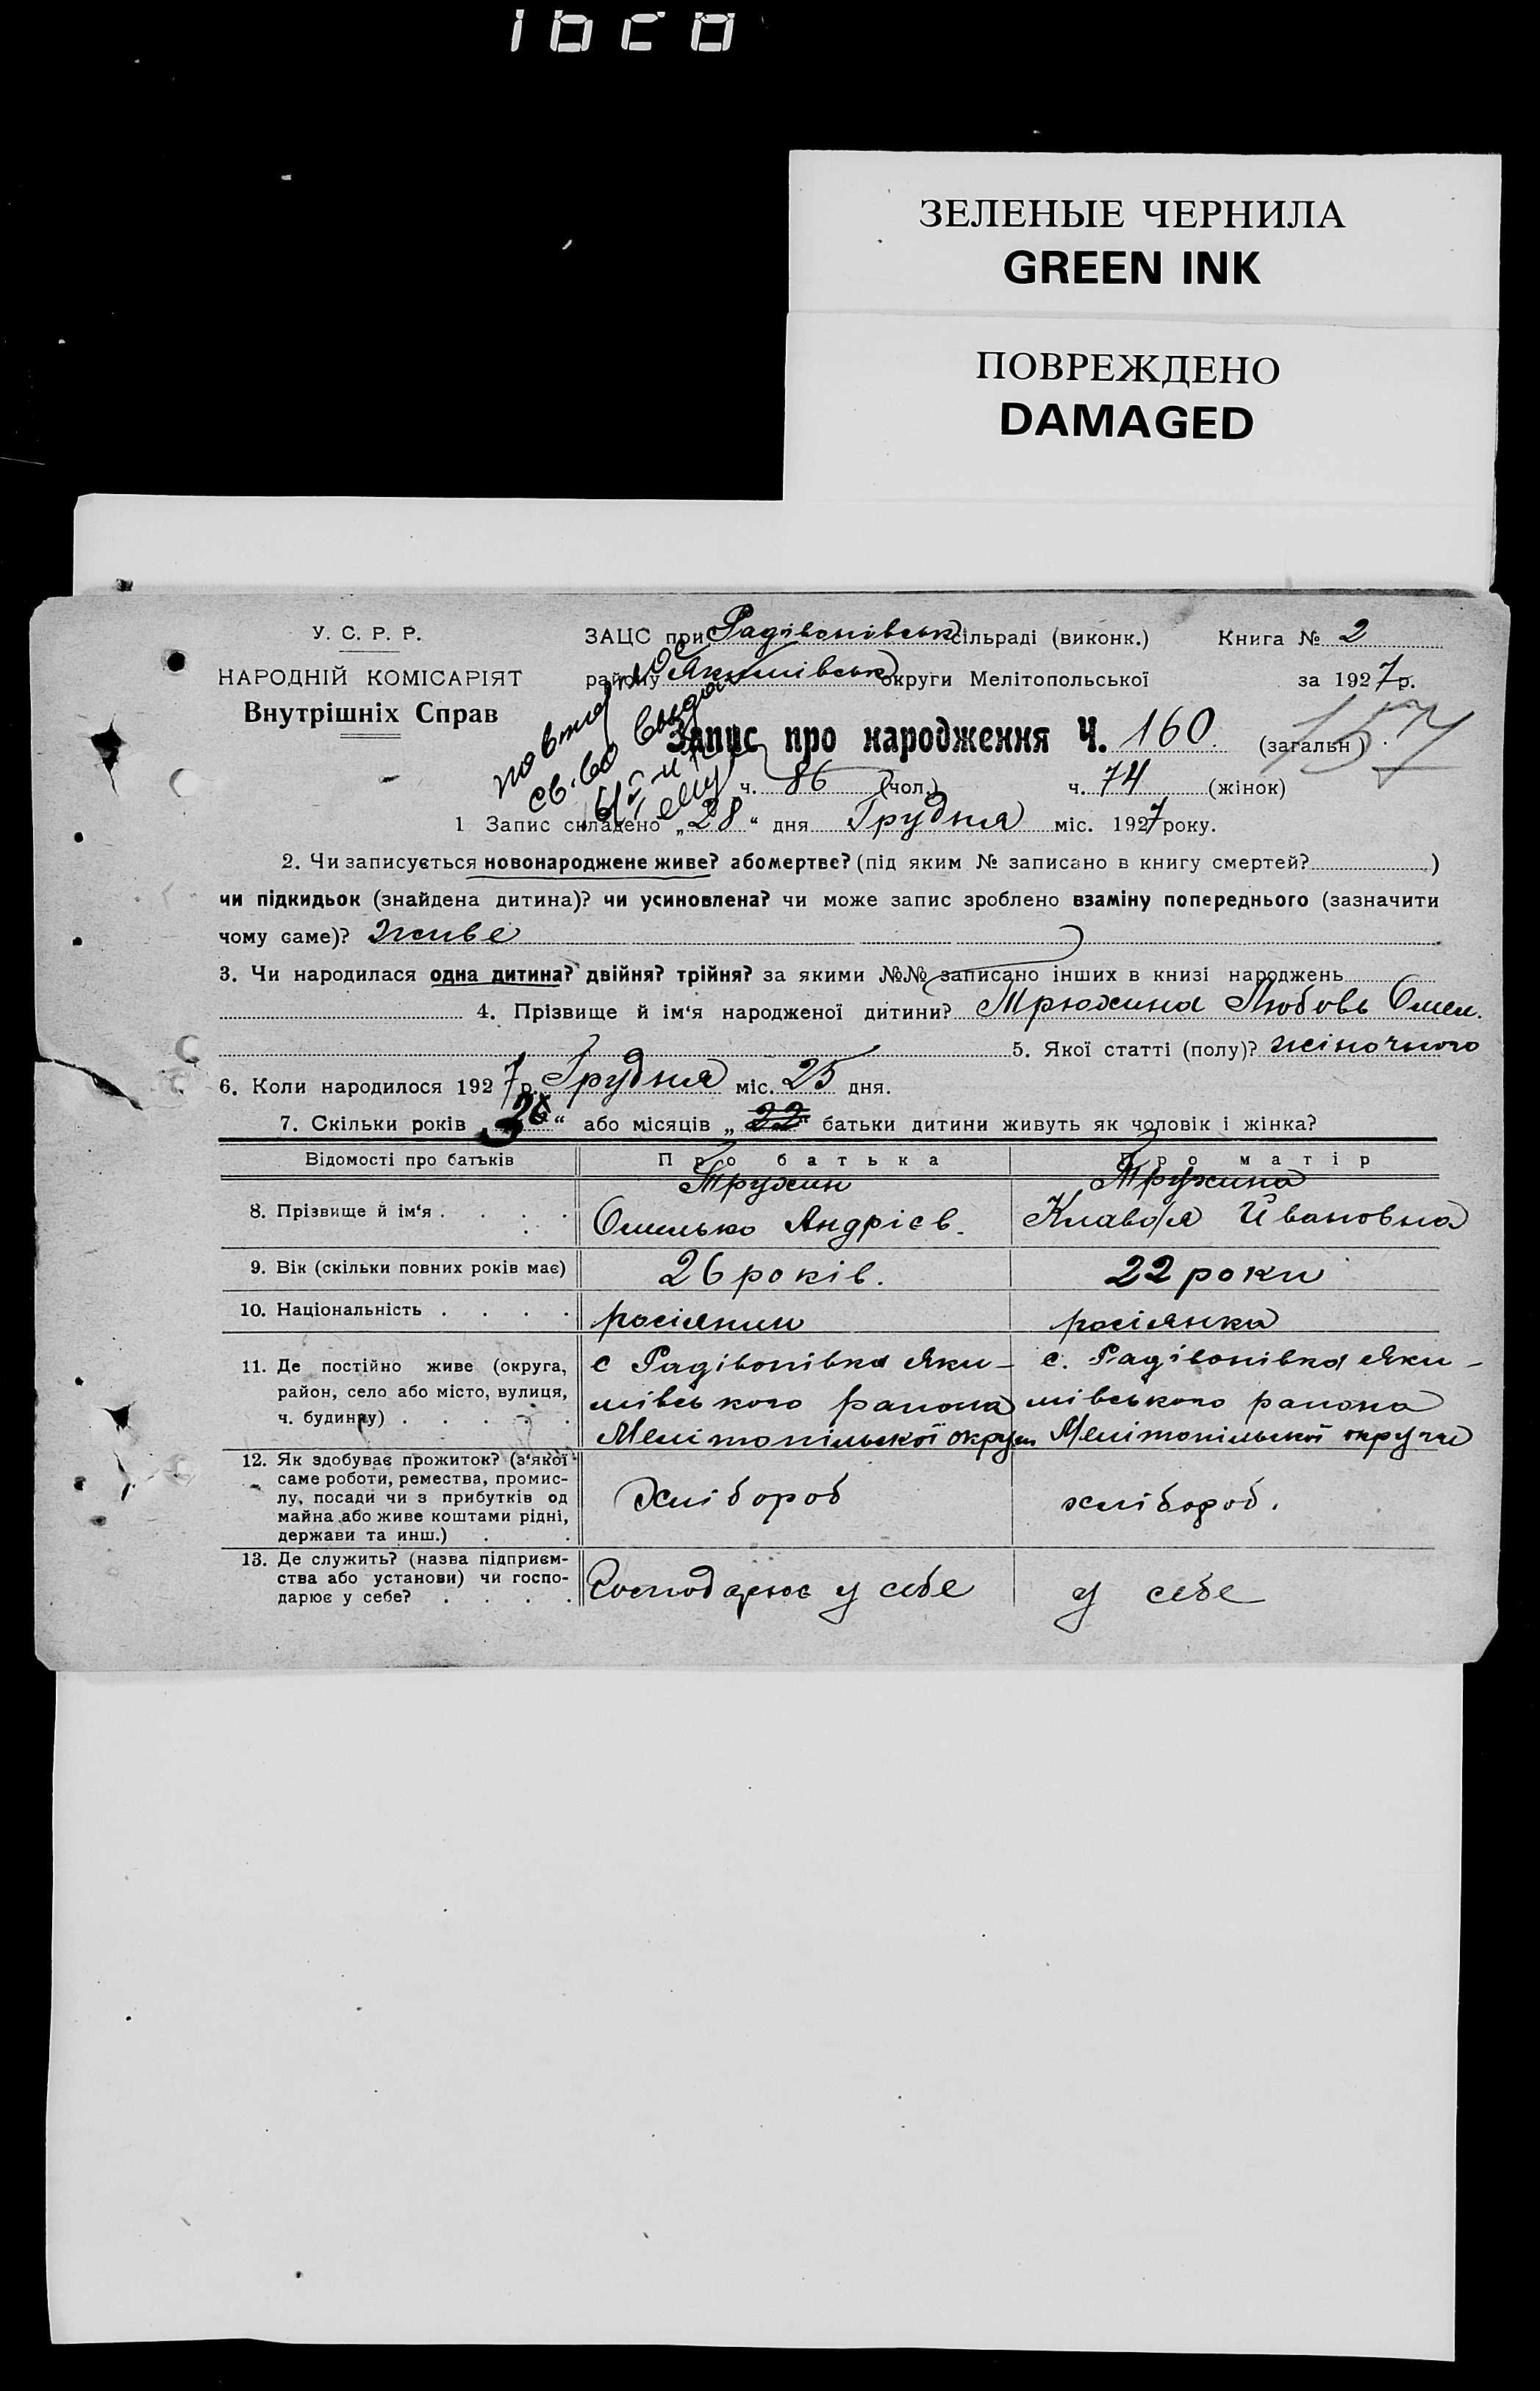 ЗЕЛЕНЫЕ ЧЕРНИЛА
GREEN INK
ПОВРЕЖДЕНО
DAMAGED
У. С. Р. Р.
НАРОДНІЙ КОМІСАРІЯТ
Внутрішніх Справ
ЗАЦС при Радівонівськ сільраді (виконк.) Книга № 2
району Якимівськ округи Мелітопольської за 1927 р.
Запис про народження Ч. 160 (загальн.) 157
ч. 86 (чол.) ч. 74 (жінок)
св-во
1 Запис складено „28“ дня Грудня міс. 1927 року.
2. Чи записується новонароджене живе? або мертве? (під яким № записано в книгу смертей? )
чи підкидьок (знайдена дитина)? чи усиновлена? чи може запис зроблено взаміну попереднього (зазначити
чому саме)? Живе
3. Чи народилася одна дитина? двійня? трійня? за якими №№ записано інших в книзі народжень
4. Прізвище й ім‘я народженої дитини? Трюхина Любовь Омел.
5. Якої статті (полу)? жіночого
6. Коли народилося 1927 р. Грудня міс. 25 дня.
7. Скільки років „ “ або місяців „22“ батьки дитини живуть як чоловік і жінка?
Відомості про батьків Про батька Про матір
8. Прізвище й ім‘я . . . . Трухин Омелько Андрієв. Трухина Клавдія Ивановна
9. Вік (скільки повних років має) 26 років. 22 роки
10. Національність . . . . росіянин росіянка
11. Де постійно живе (округа,
район, село або місто, вулиця,
ч. будинку) . . . . .
с Радівонівка Яки-
мівського района
Мелітопільської округи
с. Радівонівка Яки-
мівського района
Мелітопільської округи
12. Як здобуває прожиток? (з‘якої
саме роботи, ремества, промис-
лу, посади чи з прибутків од
майна або живе коштами рідні,
держави та инш.) . .
Хлібороб
хлібороб.
13. Де служить? (назва підприєм-
ства або установи) чи госпо-
дарює у себе? . . . .
Господарює у себе
у себе